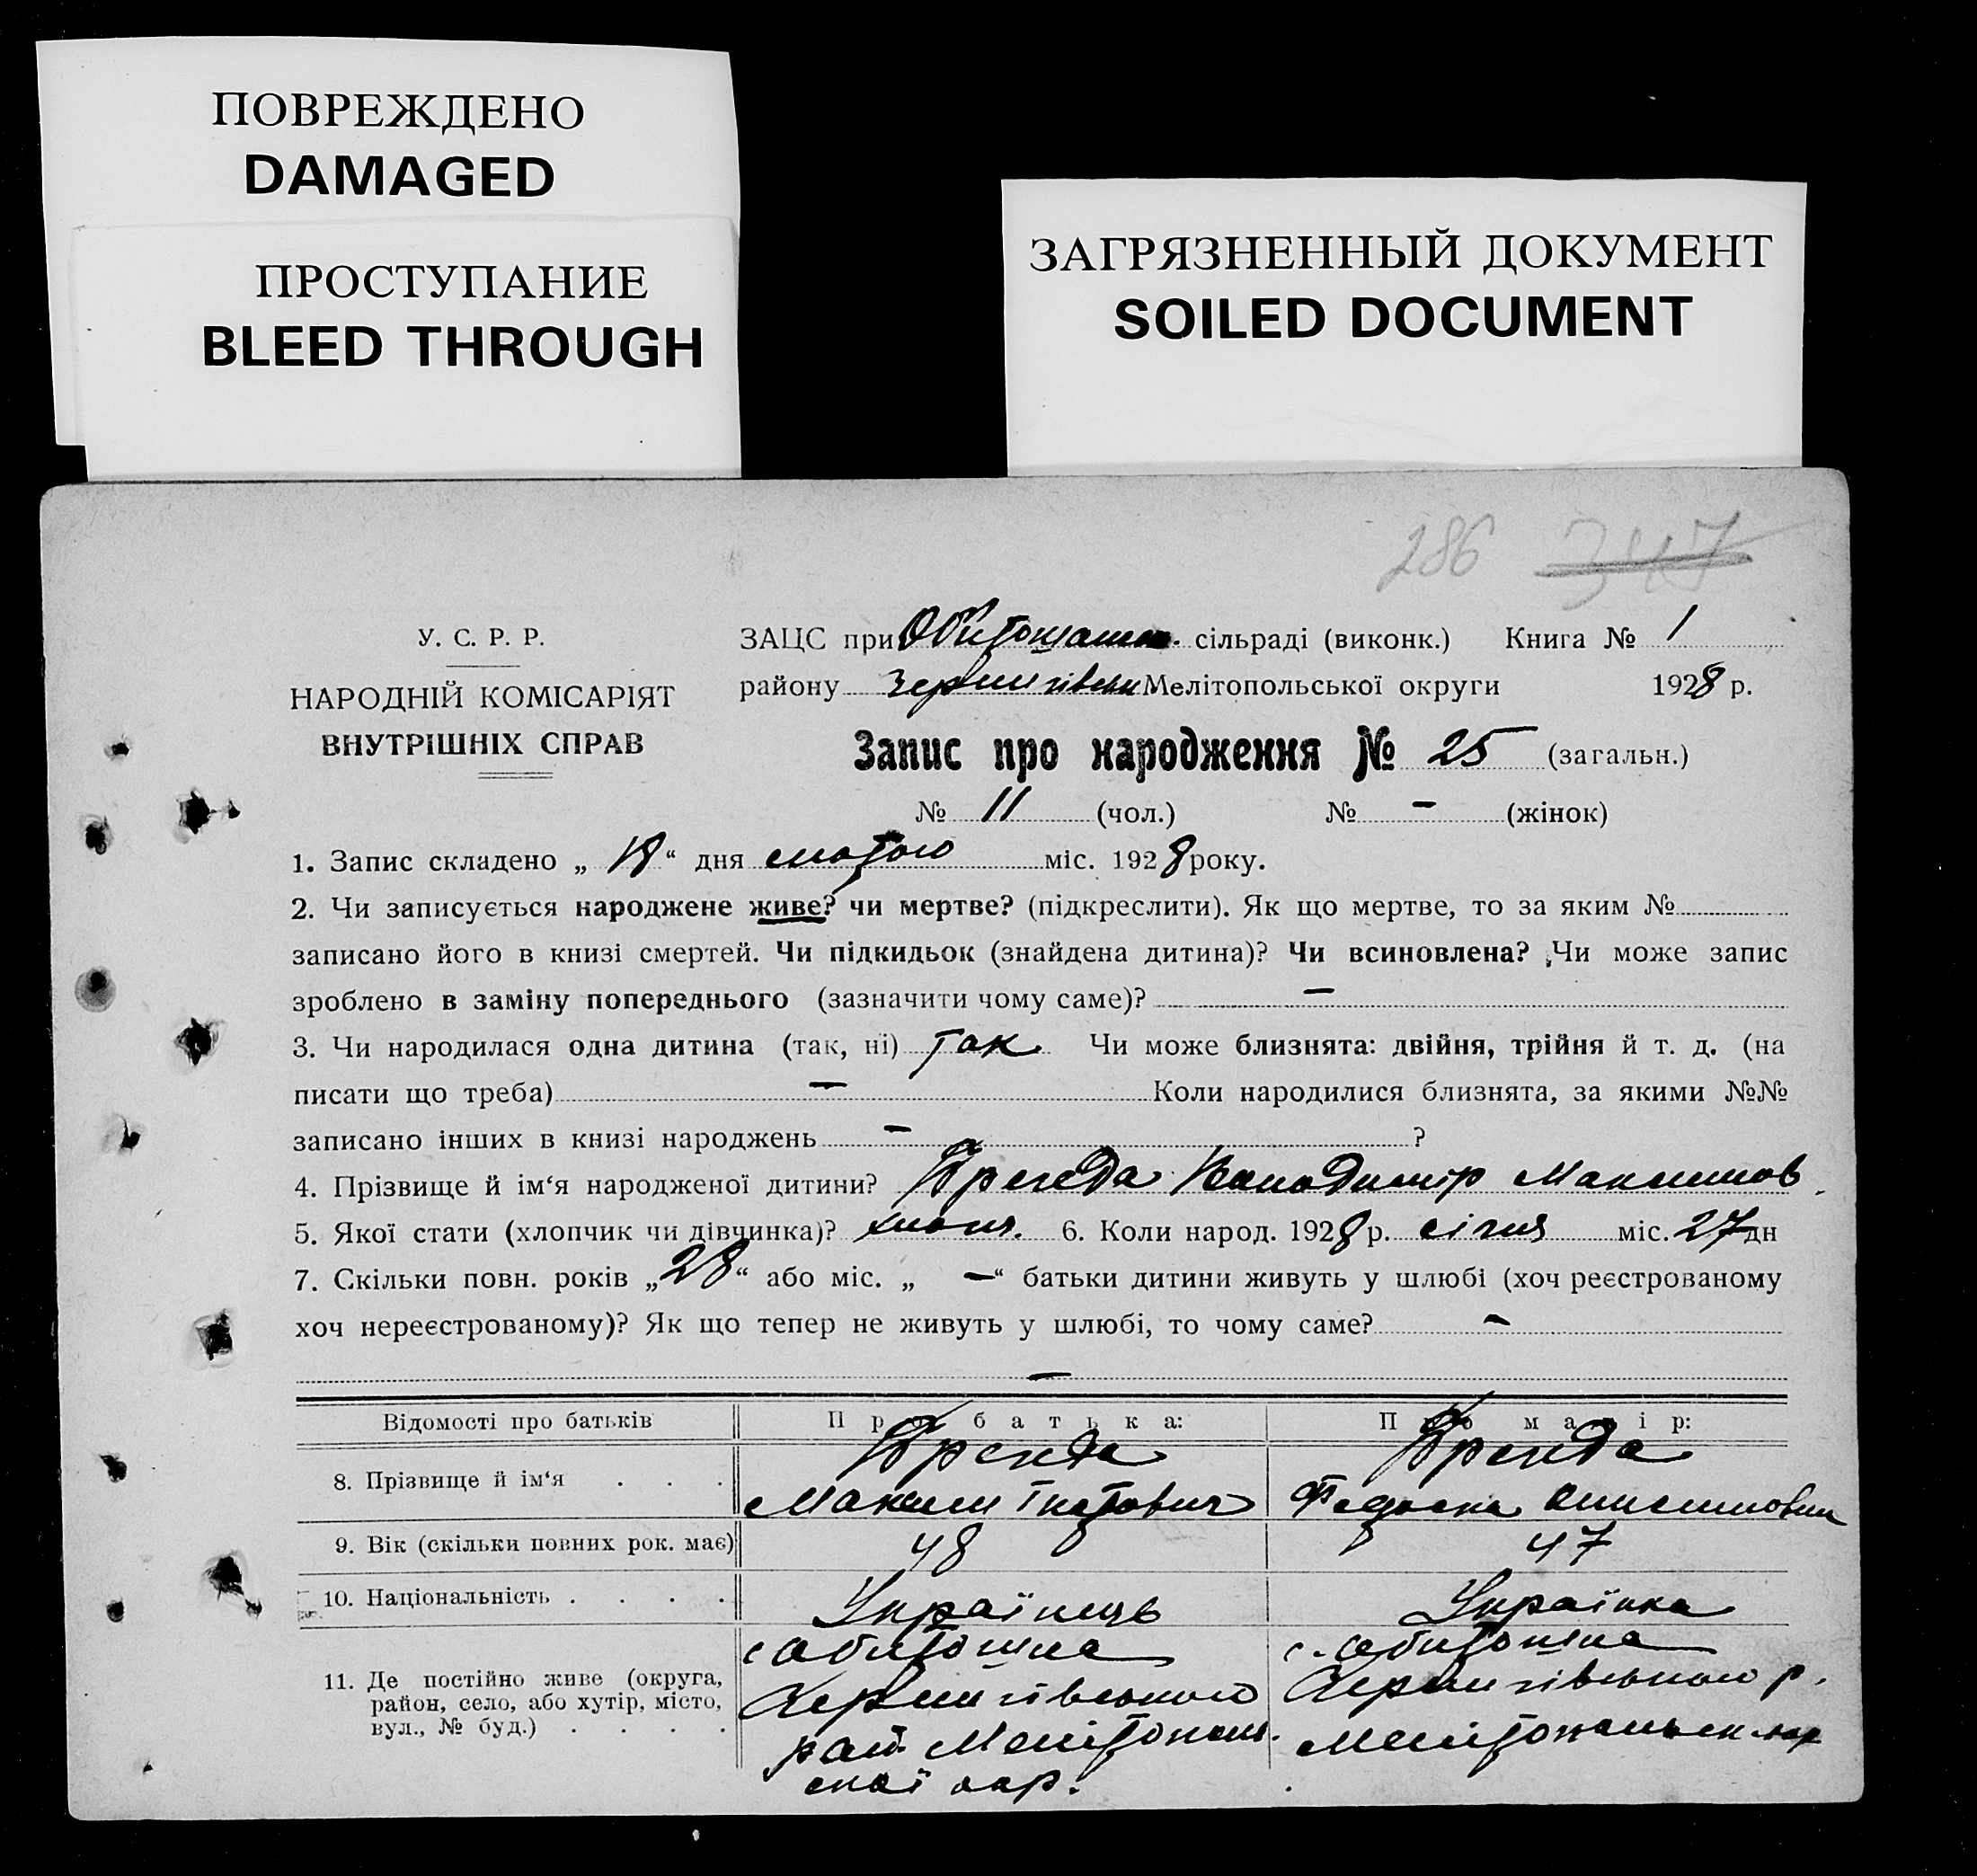 ПОВРЕЖДЕНО
DAMAGED
ПРОСТУПАНИЕ
BLEED THROUGH
ЗАГРЯЗНЕННЫЙ ДОКУМЕНТ
SOILED DOCUMENT
286 347
У. С. Р. Р.
НАРОДНІЙ КОМІСАРІЯТ
ВНУТРІШНІХ СПРАВ
ЗАЦС при сільраді (виконк.) Книга № 1
району Мелітопольської округи 1928 р.
Запис про народження № 25 (загальн.)
№ 11 (чол.) № – (жінок)
1. Запис складено „ “ дня лютого міс. 1928 року.
2. Чи записується народжене живе? чи мертве? (підкреслити). Як що мертве, то за яким №
записано його в книзі смертей. Чи підкидьок (знайдена дитина)? Чи всиновлена? Чи може запис
зроблено в заміну попереднього (зазначити чому саме)? –
3. Чи народилася одна дитина (так, ні) так Чи може близнята: двійня, трійня й т. д. (на
писати що треба) – Коли народилися близнята, за якими №№
записано інших в книзі народжень – ?
4. Прізвище й ім‘я народженої дитини? Володимір Максимов
5. Якої стати (хлопчик чи дівчинка)? хлопч. 6. Коли народ. 1928 р. січня міс. 27 дн
7. Скільки повн. років „28“ або міс. „ –“ батьки дитини живуть у шлюбі (хоч реєстрованому
хоч нереєстрованому)? Як що тепер не живуть у шлюбі, то чому саме? –
–
Відомості про батьків Про батька: Про матір:
8. Прізвище й ім‘я . . .
Максим Гнатович
9. Вік (скільки повних рок. має) 48 47
10. Національність . . . . Українець Українка
11. Де постійно живе (округа, район, село, або хутір, місто, вул., № буд.) . . . .
с Обиточна с. Обиточна
Чернигівського Чернигівського р.
рай. Мелітополь
скої окр.